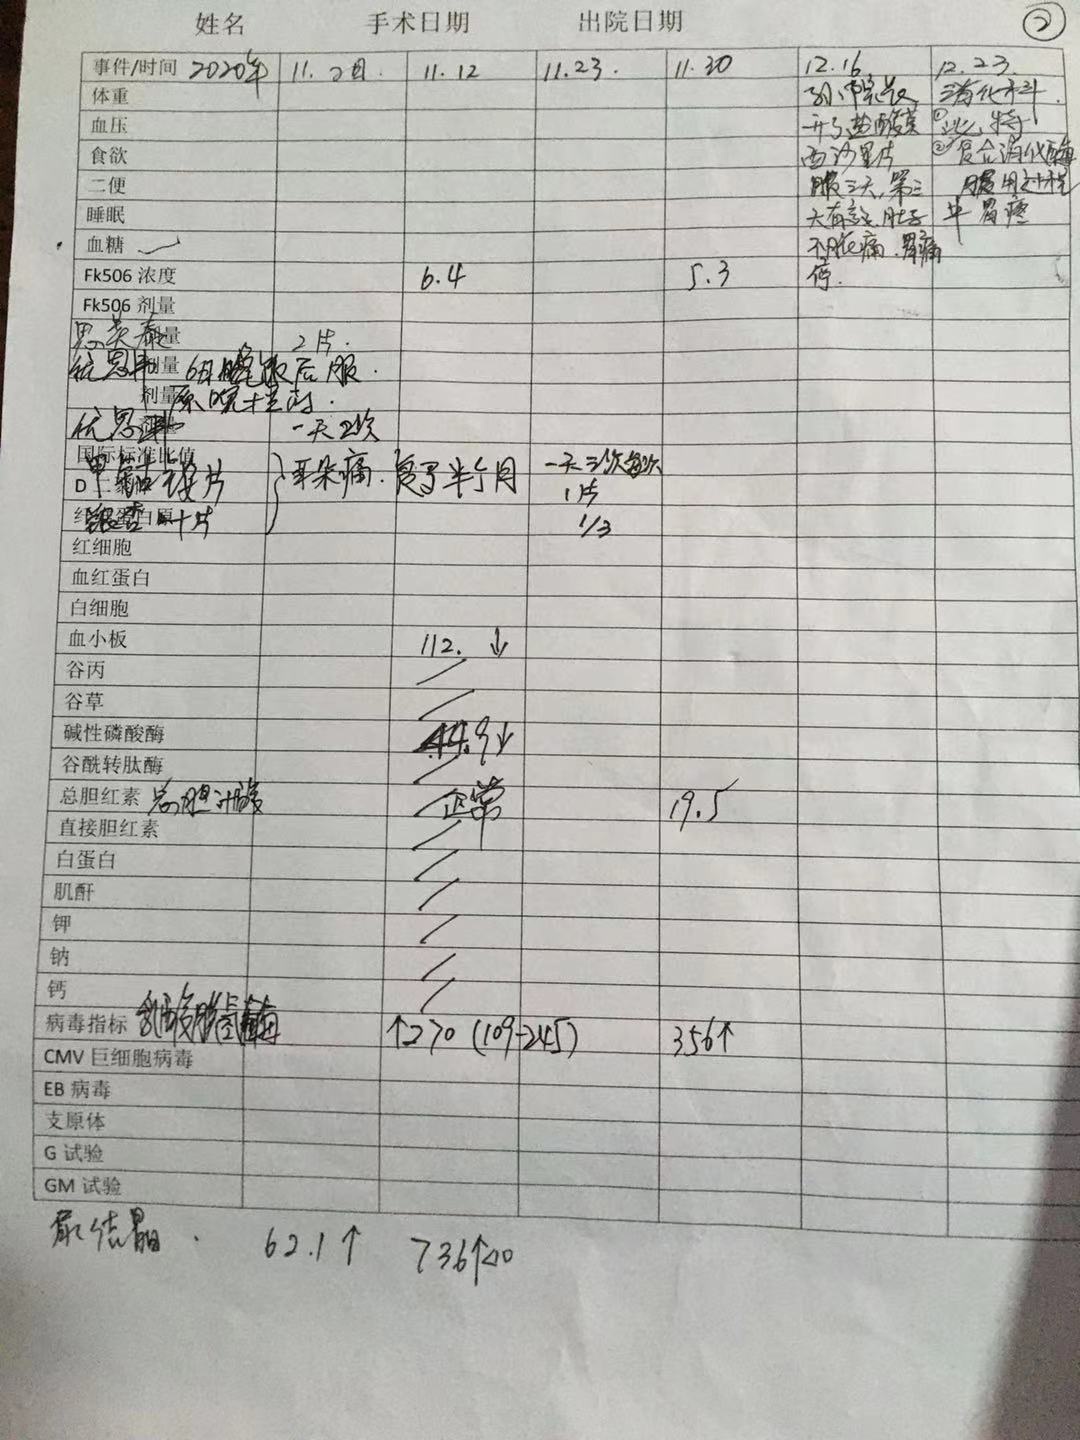 姓名 手术日期 出院日期 ②
事件/时间 2020年 11.2日. 11.12 11.23. 11.30 12.16 12.23.
体重
血压
食欲
二便
睡眠
血糖
开了盐酸莫
西沙里片
服三天,第三
停.
消化科.
②复合消化酶
服用过程
中胃疼
Fk506 浓度 6.4 5.3
Fk506 剂量
思美泰 量 2片.
优思弗 剂量 晚饭后服.
剂量
优思弗 一天2次
国际标准比值
片 耳朵痛. 半个月 一天三次每次
1片
片 1/3
红细胞
血红蛋白
白细胞
血小板 112. ↓
谷丙
谷草
碱性磷酸酶 44.9↓
谷酰转肽酶
总胆红素 总胆汁酸 正常 19.5
直接胆红素
白蛋白
肌酐
钾
钠
钙
病毒指标 乳酸脱氢酶 ↑270 (109-245) 356↑
CMV 巨细胞病毒
EB 病毒
支原体
G 试验
GM 试验
尿结晶. 62.1↑ 736↑<10